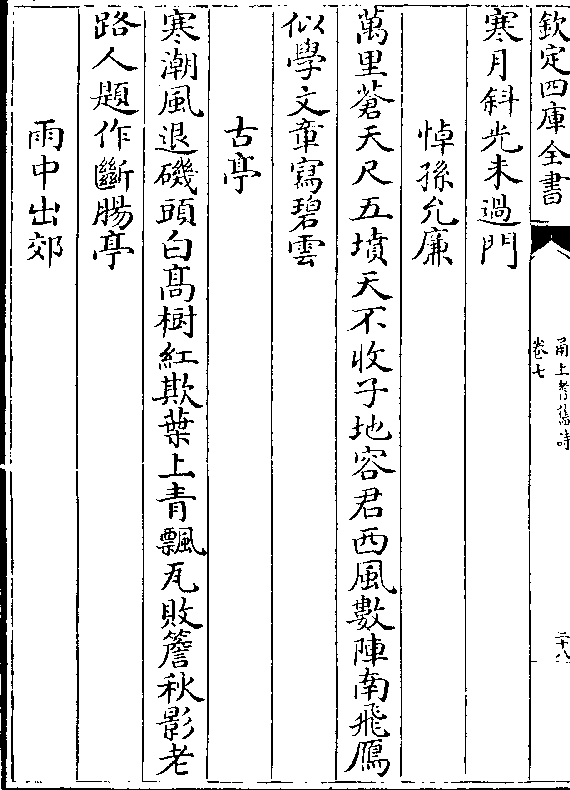 欽定四庫全書
甬上耆舊詩
卷七
二十八
寒月斜光未過門
悼孫允廉
萬里蒼天尺五墳天不收子地容君西風數陣南飛鴈
似學文章寫碧雲
古亭
寒潮風退磯頭白髙樹紅欺葉上青飄瓦敗簷秋影老
路人題作斷腸亭
雨中出郊